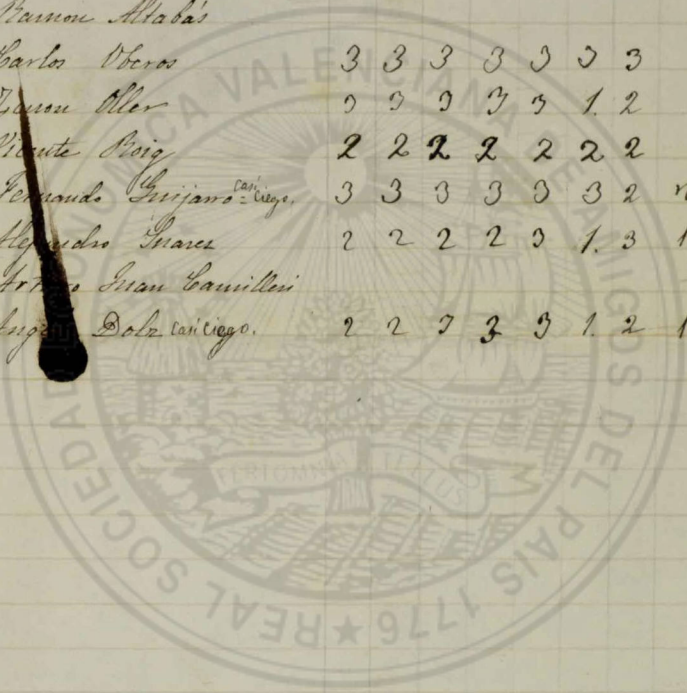 Ramon Altabás
Carlos Oberos 3 3 3 3 3 3 3
Ramon Oller 3 3 3 3 3 1. 2
Vicente Roig 2 2 2 2 2 2 2
Fernando Guijarro = casi ciego. 3 3 3 3 3 3 2
Alejandro Suarez 2 2 2 2 3 1. 3 1
Arturo Juan Camilleri
Angel Dolz casi ciego. 2 2 3 3 3 1. 2 1
REAL SOCIEDAD ECONOMICA VALENCIANA DE AMIGOS DEL PAIS 1776
FERT OMNIA TELLUS